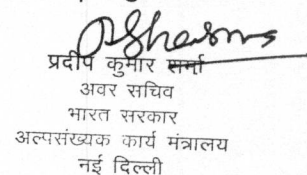 प्रदीप कुमार सर्मा
अवर सचिव
भारत सरकार
अल्पसंख्यक कार्य मंत्रालय
नई दिल्ली